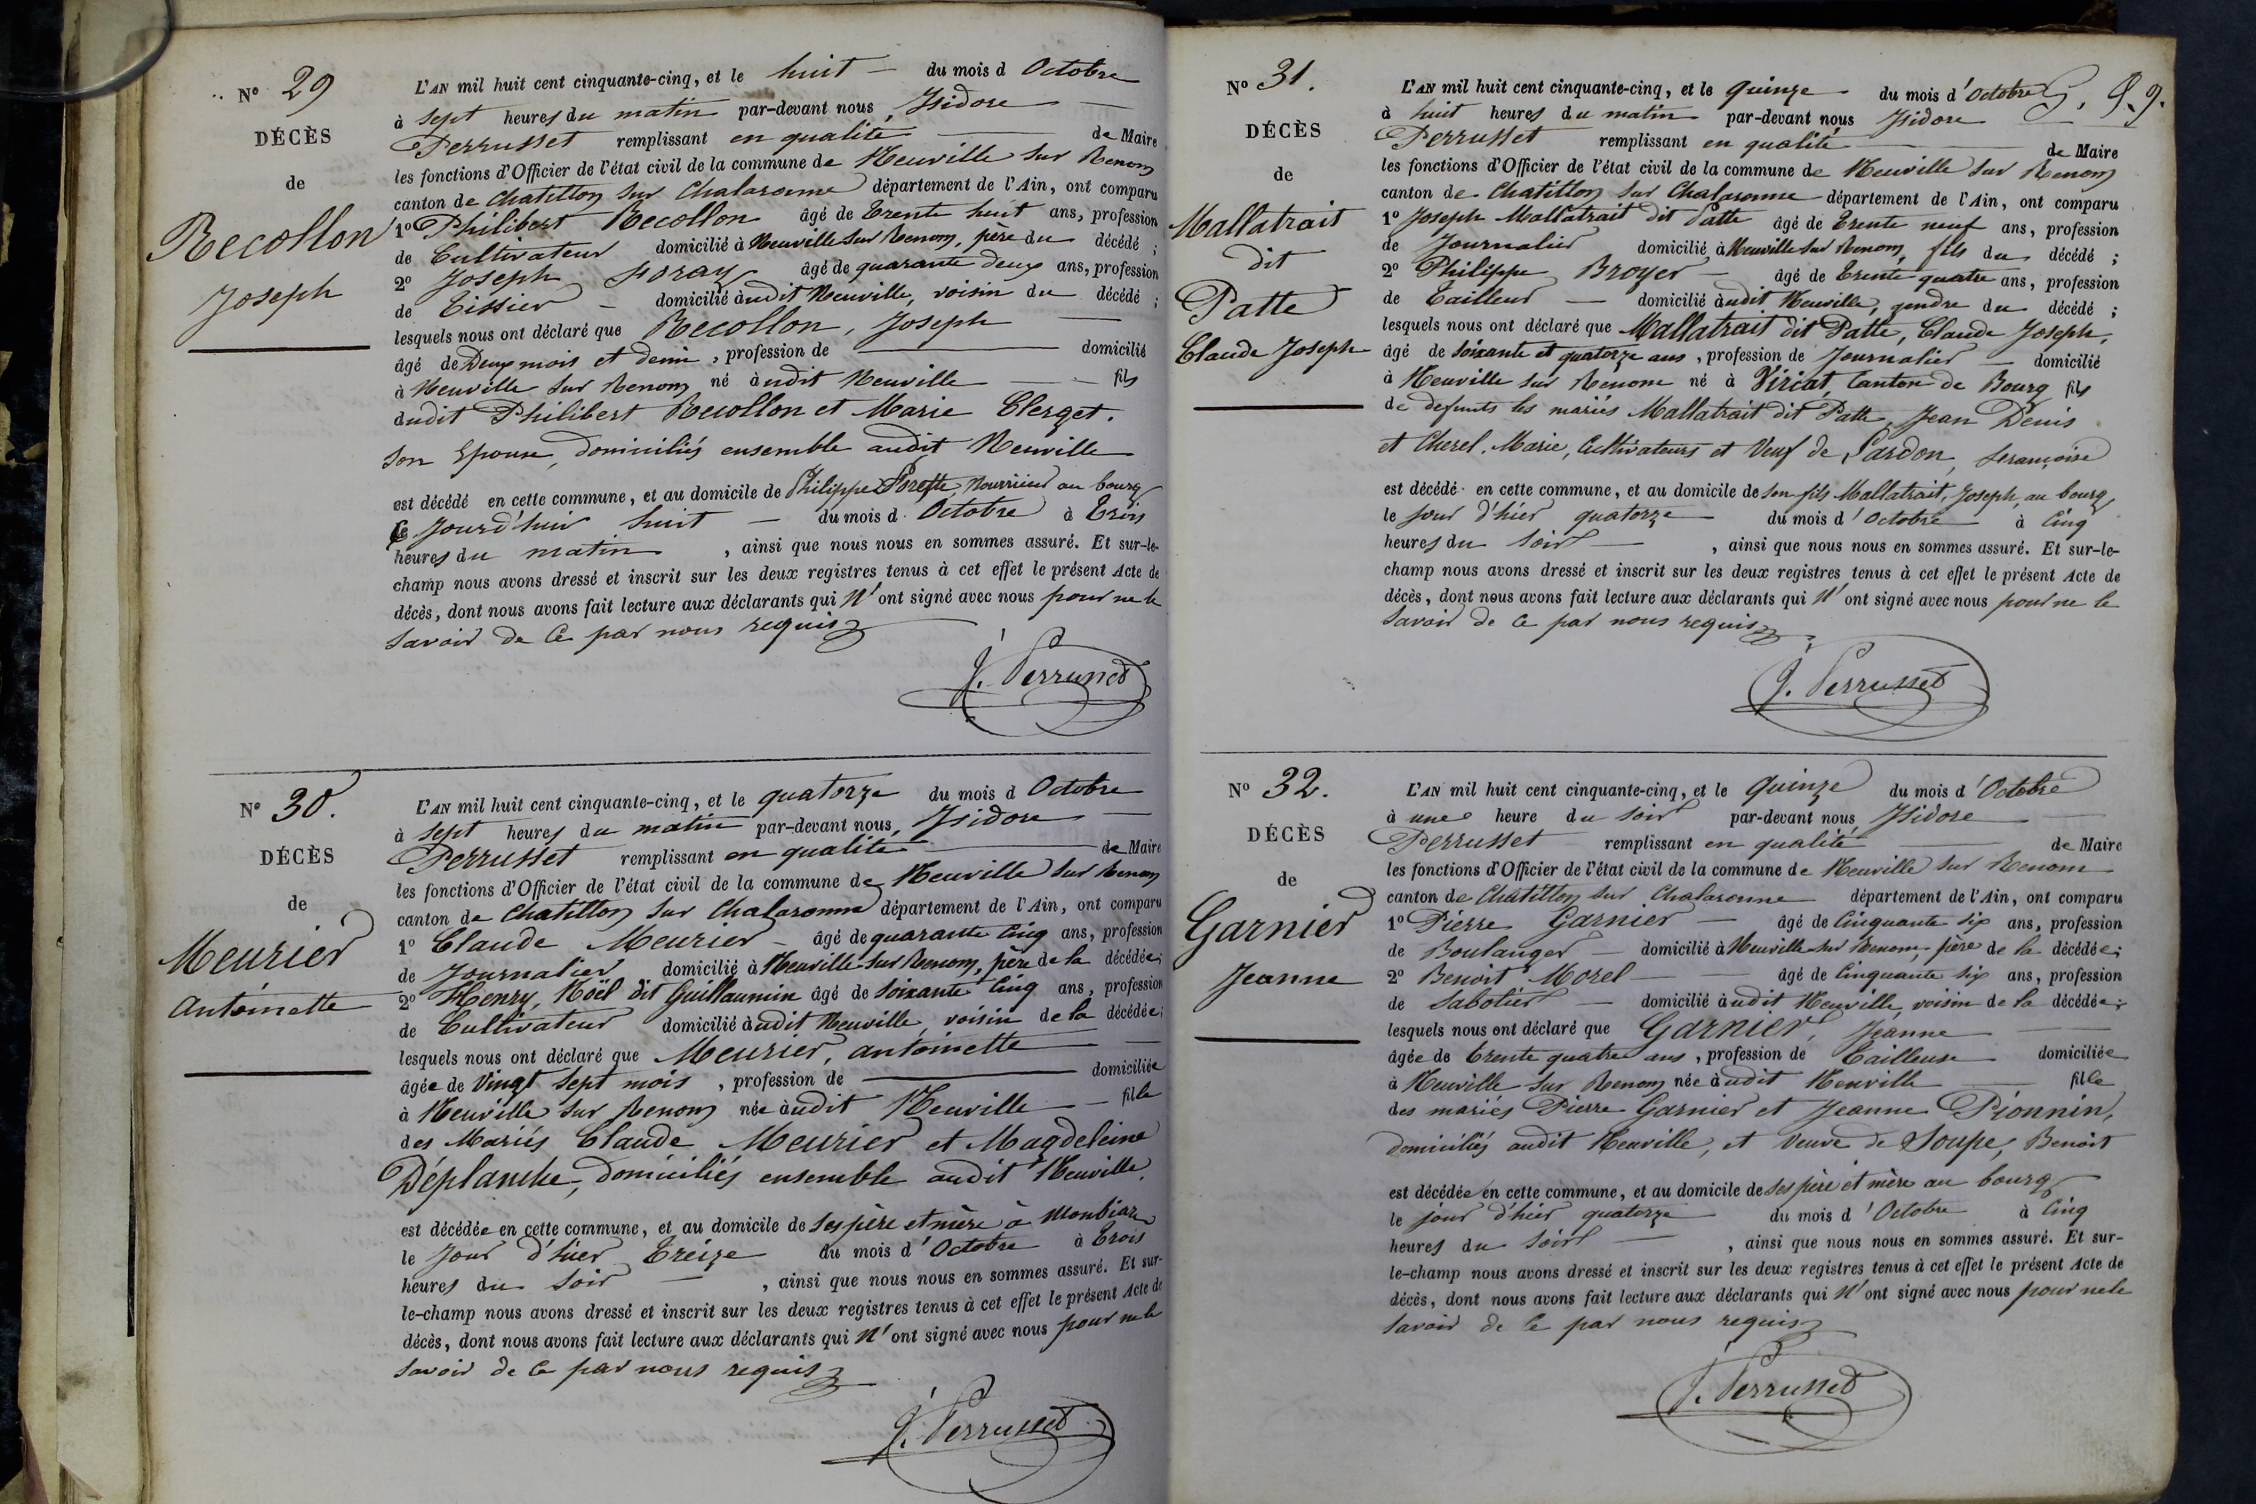 N° 29
DÉCÈS
de
Recollon
Joseph
L'AN mil huit cent cinquante-cinq, et le huit du mois d Octobre
à sept heures du matin par-devant nous, Isidore
Perrusset remplissant en qualité de Maire
les fonctions d'Officier de l'état civil de la commune de Neuville sur Renom
canton de Chatillon sur Chalaronne département de l'Ain, ont comparu
1° Philibert Recollon âgé de trente huit ans, profession
de Cultivateur domicilié à Neuville sur Renom, père du décédé ;
2° Joseph Foray âgé de quarante deux ans, profession
de Tissier domicilié àudit Neuville, voisin du décédé ;
lesquels nous ont déclaré que Recollon, Joseph
âgé de Deux mois et demi, profession de domicilié
à Neuville sur Renom né àudit Neuville fils
dudit Philibert Recollon et Marie Clerget.
son Epouse, domiciliés ensemble audit Neuville
est décédé en cette commune, et au domicile de Philippe Nourrieur au bourg
le jourd'hui huit du mois d Octobre à trois
heures du matin, ainsi que nous nous en sommes assuré. Et sur-le-
champ nous avons dressé et inscrit sur les deux registres tenus à cet effet le présent Acte de
décès, dont nous avons fait lecture aux déclarants qui N'ont signé avec nous pour ne le
savoir de ce par nous requis
J. Perrusset
N° 30.
DÉCÈS
de
Meurier
Antoinette
L'AN mil huit cent cinquante-cinq, et le quatorze du mois d Octobre
à sept heures du matin par-devant nous, Isidore
Perrusset remplissant en qualité de Maire
les fonctions d'Officier de l'état civil de la commune de Neuville sur Renom
canton de Chatillon sur Chalaronne département de l'Ain, ont comparu
1° Claude Meurier âgé de quarante cinq ans, profession
de Journalier domicilié à Neuville sur Renom, père de la décédée ;
2° Henry, Noël dit Guillaumin âgé de soixante cinq ans, profession
de Cultivateur domicilié àudit Neuville, voisin de la décédée ;
lesquels nous ont déclaré que Meurier, antoinette
âgée de Vingt sept mois, profession de domiciliée
à Neuville sur Renom née àudit Neuville fille
des Mariés Claude Meurier et Magdeleine
Déplanche, domiciliés ensemble audit Neuville.
est décédée en cette commune, et au domicile de ses père et mère à
le jour d'hier treize du mois d'Octobre à trois
heures du soir, ainsi que nous nous en sommes assuré. Et sur-
le-champ nous avons dressé et inscrit sur les deux registres tenus à cet effet le présent Acte de
décès, dont nous avons fait lecture aux déclarants qui N'ont signé avec nous pour ne le
savoir de ce par nous requis
J. Perrusset
N° 31.
DÉCÈS
de
Mallatrait
dit
Patte
Claude Joseph
L'AN mil huit cent cinquante-cinq, et le quinze du mois d'Octobre
à huit heures du matin par-devant nous Isidore
Perrusset remplissant en qualité de Maire
les fonctions d'Officier de l'état civil de la commune de Neuville sur Renom
canton de Chatillon sur Chalaronne département de l'Ain, ont comparu
1° Joseph Mallatrait dit Patte âgé de trente neuf ans, profession
de Journalier domicilié à Neuville sur Renom, fils du décédé ;
2° Philippe Broyer âgé de trente quatre ans, profession
de Tailleur domicilié àudit Neuville, gendre du décédé ;
lesquels nous ont déclaré que Mallatrait dit Patte, Claude Joseph,
âgé de soixante et quatorze ans, profession de Journalier domicilié
à Neuville sur Renom né à Viriat, Canton de Bourg fils
de defunts les mariés Mallatrait dit Patte, Jean Denis
et Cherel, Marie, Cultivateurs et Veuf de Pardon, françoise
est décédé en cette commune, et au domicile de son fils Mallatrait, Joseph, au bourg,
le jour d'hier quatorze du mois d'Octobre à Cinq
heures du soir, ainsi que nous nous en sommes assuré. Et sur-le-
champ nous avons dressé et inscrit sur les deux registres tenus à cet effet le présent Acte de
décès, dont nous avons fait lecture aux déclarants qui N'ont signé avec nous pour ne le
savoir de ce par nous requis
J. Perrusset
N° 32.
DÉCÈS
de
Garnier
Jeanne
L'AN mil huit cent cinquante-cinq, et le quinze du mois d'Octobre
à une heure du soir par-devant nous Isidore
Perrusset remplissant en qualité de Maire
les fonctions d'Officier de l'état civil de la commune de Neuville sur Renom
canton de Chatillon sur Chalaronne département de l'Ain, ont comparu
1° Pierre Garnier âgé de Cinquante six ans, profession
de Boulanger domicilié à Neuville sur Renom, père de la décédée ;
2° Benoit Morel âgé de Cinquante six ans, profession
de Sabotier domicilié àudit Neuville, voisin de la décédée ;
lesquels nous ont déclaré que Garnier, Jeanne
âgée de trente quatre ans, profession de Tailleuse domiciliée
à Neuville sur Renom née àudit Neuville fille
des mariés Pierre Garnier et Jeanne Pionnin,
domiciliés audit Neuville, et Veuve de Soupe, Benoit
est décédée en cette commune, et au domicile de ses père et mère au bourg
le jour d'hier quatorze du mois d'Octobre à Cinq
heures du soir, ainsi que nous nous en sommes assuré. Et sur-
le-champ nous avons dressé et inscrit sur les deux registres tenus à cet effet le présent Acte de
décès, dont nous avons fait lecture aux déclarants qui N'ont signé avec nous pour ne le
savoir de ce par nous requis
J. Perrusset